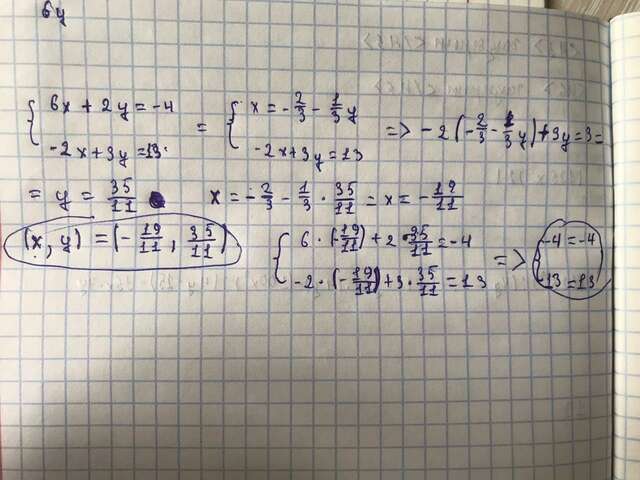 6y
{ 6x + 2y = -4 = { x = -2/3 - 1/3 y => -2(-2/3 - 1/3 y) + 3y = 3 =
-2x + 3y = 13 -2x + 3y = 13
= y = 35/11 x = -2/3 - 1/3 · 35/11 = x = -19/11
(x, y) = (-19/11, 35/11) { 6 · (-19/11) + 2 · 35/11 = -4 => { -4 = -4
-2 · (-19/11) + 3 · 35/11 = 13 13 = 13